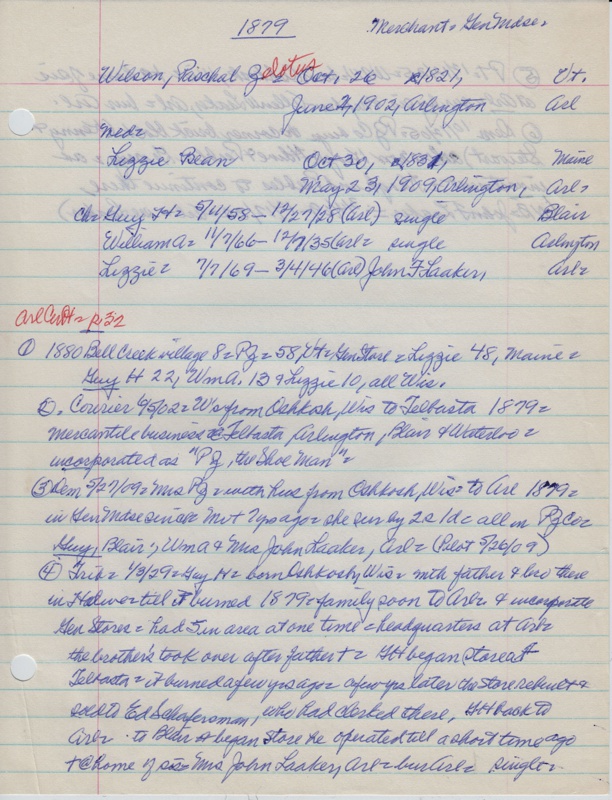 1879 Merchant = Gen Mdse =
Wilson, Paschal Zelotus Oct. 26 1821, Vt.
June 4, 1902, Arlington Arl
med=
Lizzie Bean Oct 30, 1831, Maine
May 23, 1909, Arlington, Arl=
ch= Guy H = 5/11/58 - 12/27/28 (Arl) single Blair
William A = 11/7/66 - 12/7/35 (Arl = single Arlington
Lizzie = 7/7/69 - 3/4/46 (Arl) John F Laaker, Arl=
Arl Cent = p 32
① 1880 Bell Creek village 8 = PZ = 58, Vt = Gen Store = Lizzie 48, Maine =
Guy H 22, Wm A. 13 & Lizzie 10, all Wis.
②. Courier 6/5/02 = Ws from Oshkosh, Wis to Telbasta 1879 =
mercantile business @ Telbasta, Arlington, Blair & Waterloo =
incorporated as "PZ, the Shoe Man" =
③ Dem 5/27/09 = Mrs PZ = with hus from Oshkosh, Wis = to Arl 1879 =
in Gen Mdse since = Mr + 7 yrs ago = she sur by 2s 1d = all in PZ Co =
Guy, Blair, Wm A & Mrs John Laaker, Arl = (Pilot 5/26/09)
④ Trib = 1/3/29 = Guy H = born Oshkosh, Wis = with father & bro there
in Hdwe till it burned 1879 = family soon to Arl = & incorporate
Gen Stores = had 5 in area at one time = headquarters at Arl =
the brothers took over after father + = GH began store at
Telbasta = it burned a few yrs ago = a few yrs later the store rebuilt &
sold to Ed Schafersman, who had clerked there, GH back to
Arl = to Blair & began store he operated till a short time ago
+ @ home of sis = Mrs John Laaker, Arl = bur Arl = single =